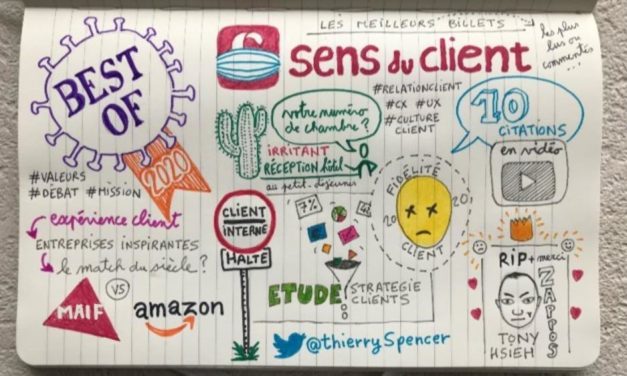 LES MEILLEURS BILLETS
sens du client
les plus
lus ou
commentés
...
BEST
OF
2020
#VALEURS
#DÉBAT #MISSION
expérience client
ENTREPRISES INSPIRANTES
le match du siècle ?
MAIF
VS
amazon
votre numéro
de chambre ?
IRRITANT
RÉCEPTION hôtel
au petit-déjeuner
#RELATIONCLIENT
#CX #UX
#CULTURE
CLIENT
10
CITATIONS
en vidéo
CLIENT
INTERNE
HALTE
7%
ETUDE
STRATEGIE
CLIENTS
FIDÉLITÉ
20 20
CLIENT
@thierrySpencer
RiP + merci
ZAPPOS
TONY
HSIEH